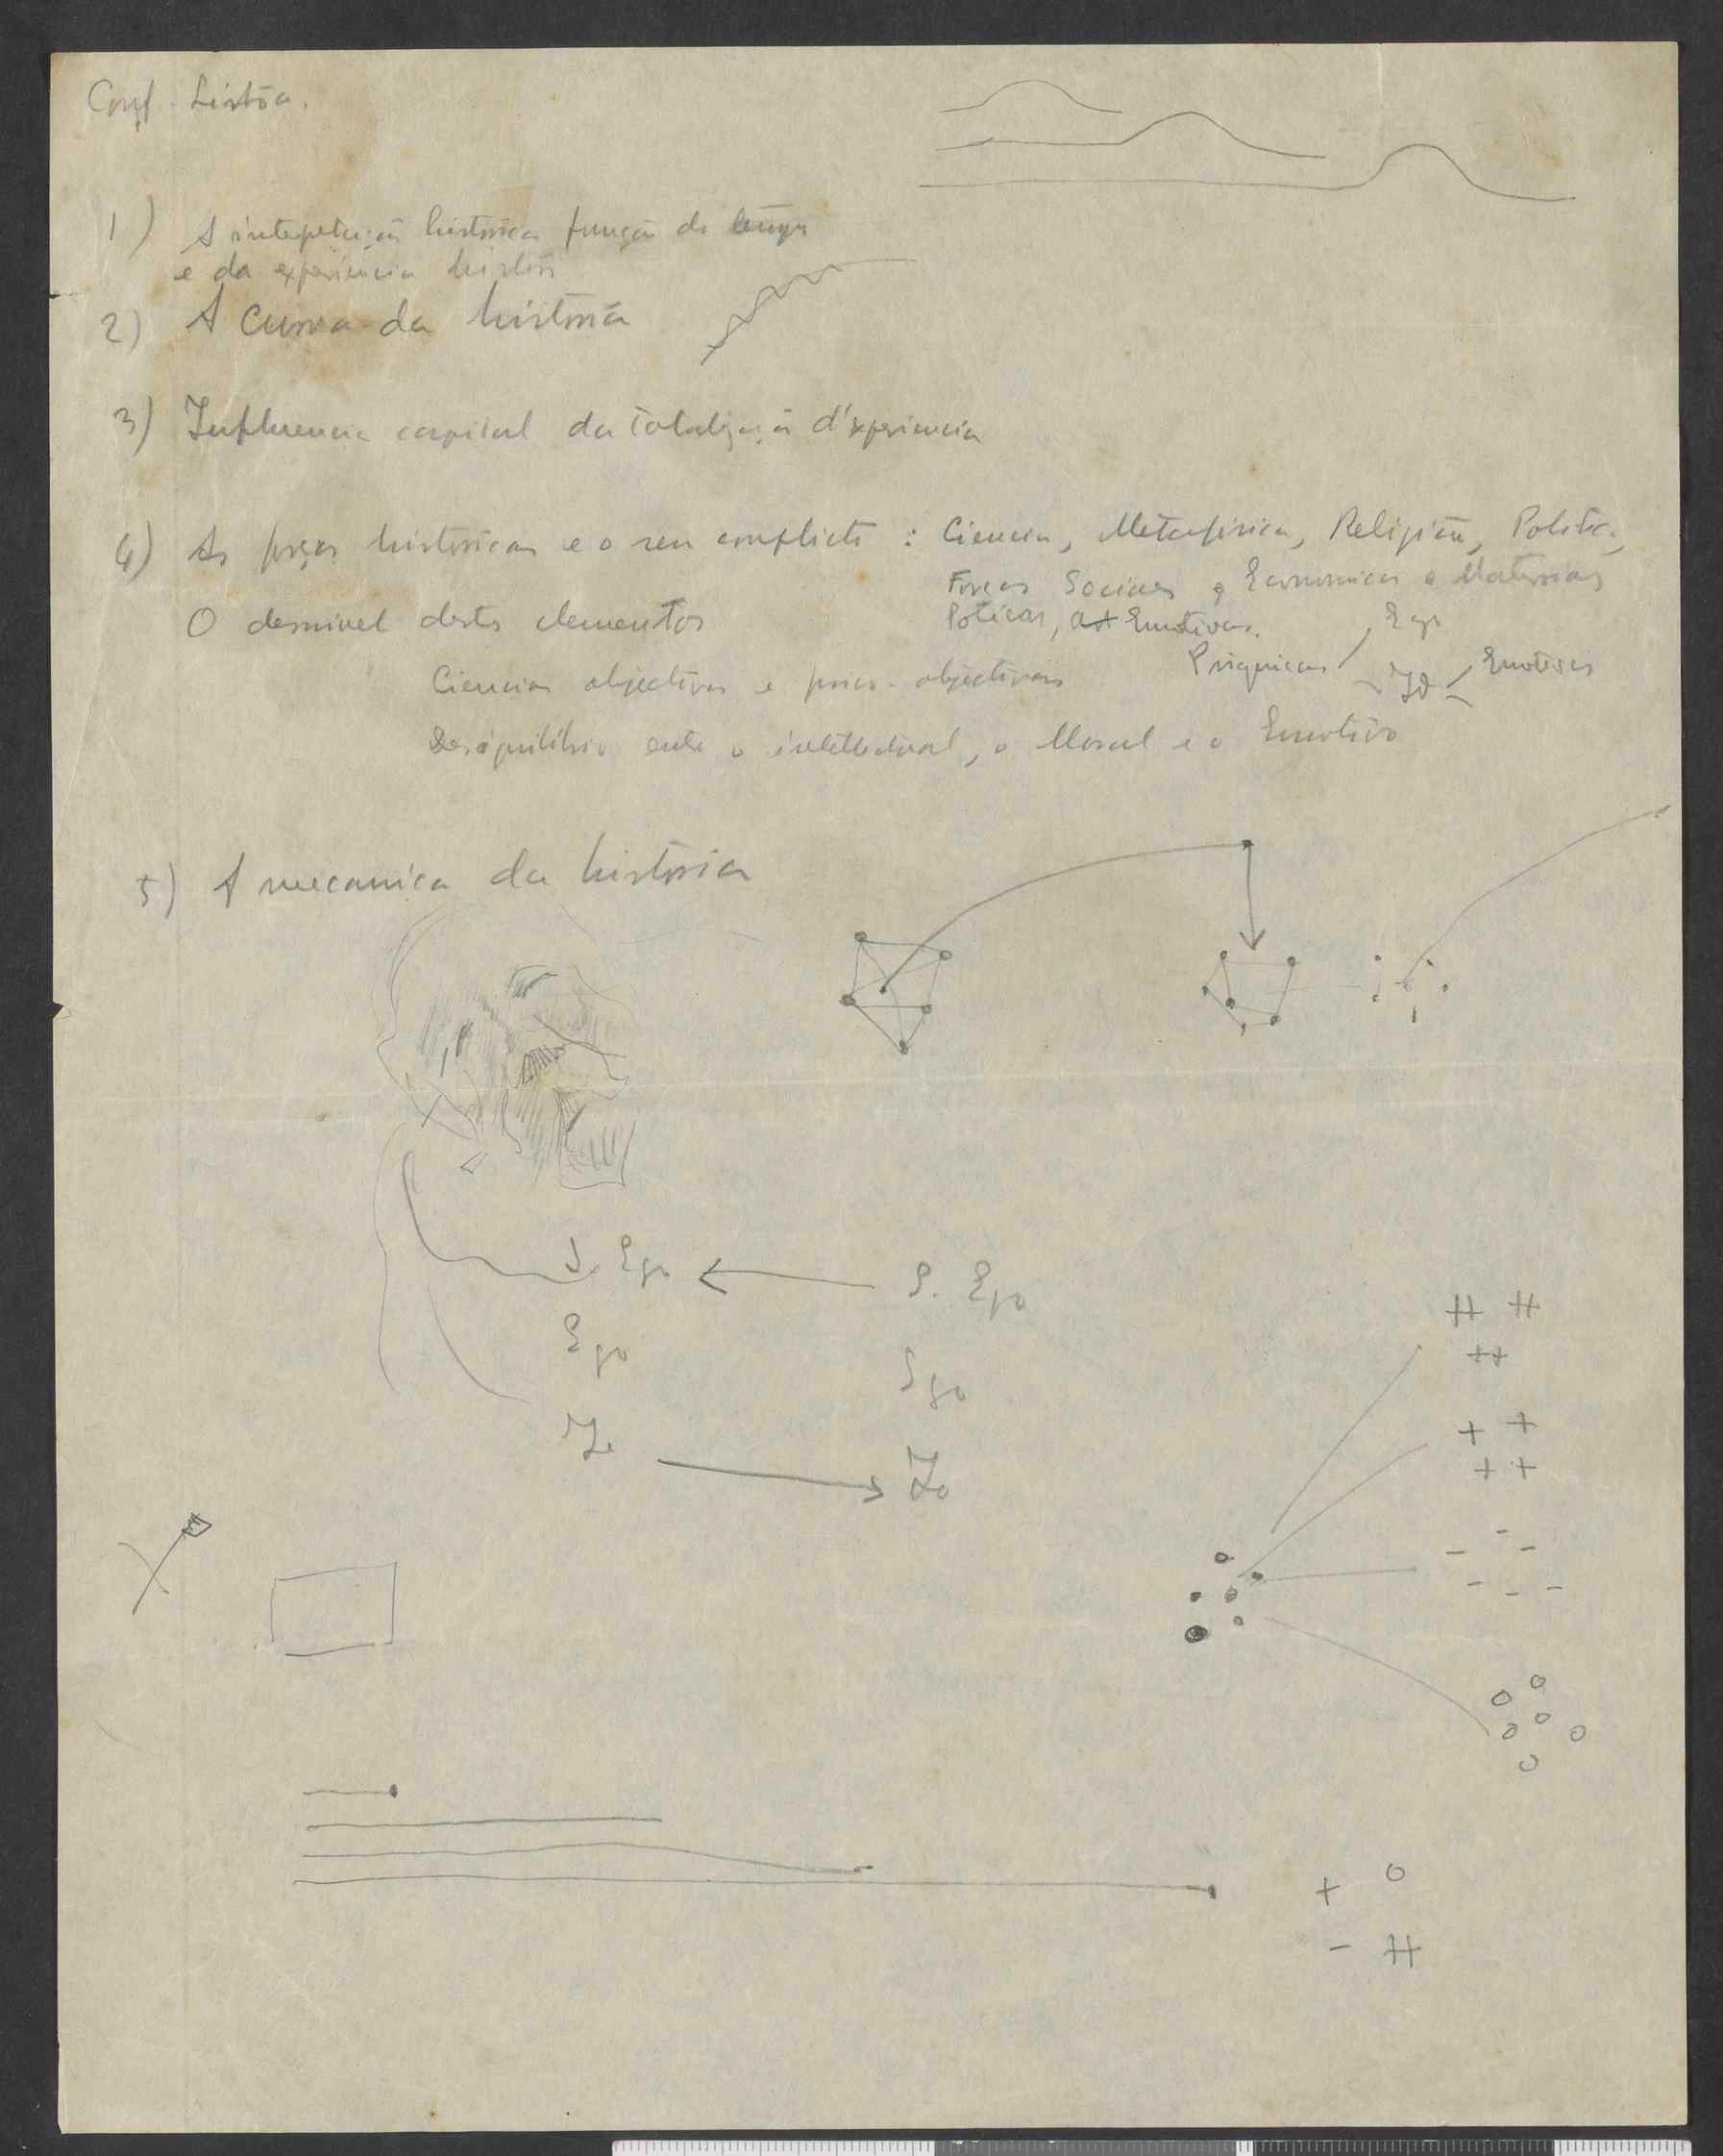 Conf. Lisbôa.
1) A interpretação historica função do tempo
e da experiencia histori
2) A curva da história
3) Influencia capital da totalização d'experiencia
4) As forças historicas e o seu conflicto : Ciencia, Metafisica, Religião, Politica,
Forças Sociaes e Economicas e Materiaes
O desnivel destes elementos
Poticas, Emotivas.
Ego
Psiquicas
Id
Emotivas
Ciencias objectivas e pouco-objectivas
Desiquilibrio entre o intellectual, o Moral e o Emotivo
5) A mecanica da história
S Ego
S. Ego
Ego
Ego
Id
Id
++ ++
++
+ +
+ +
- - -
- - -
+ o
- ++